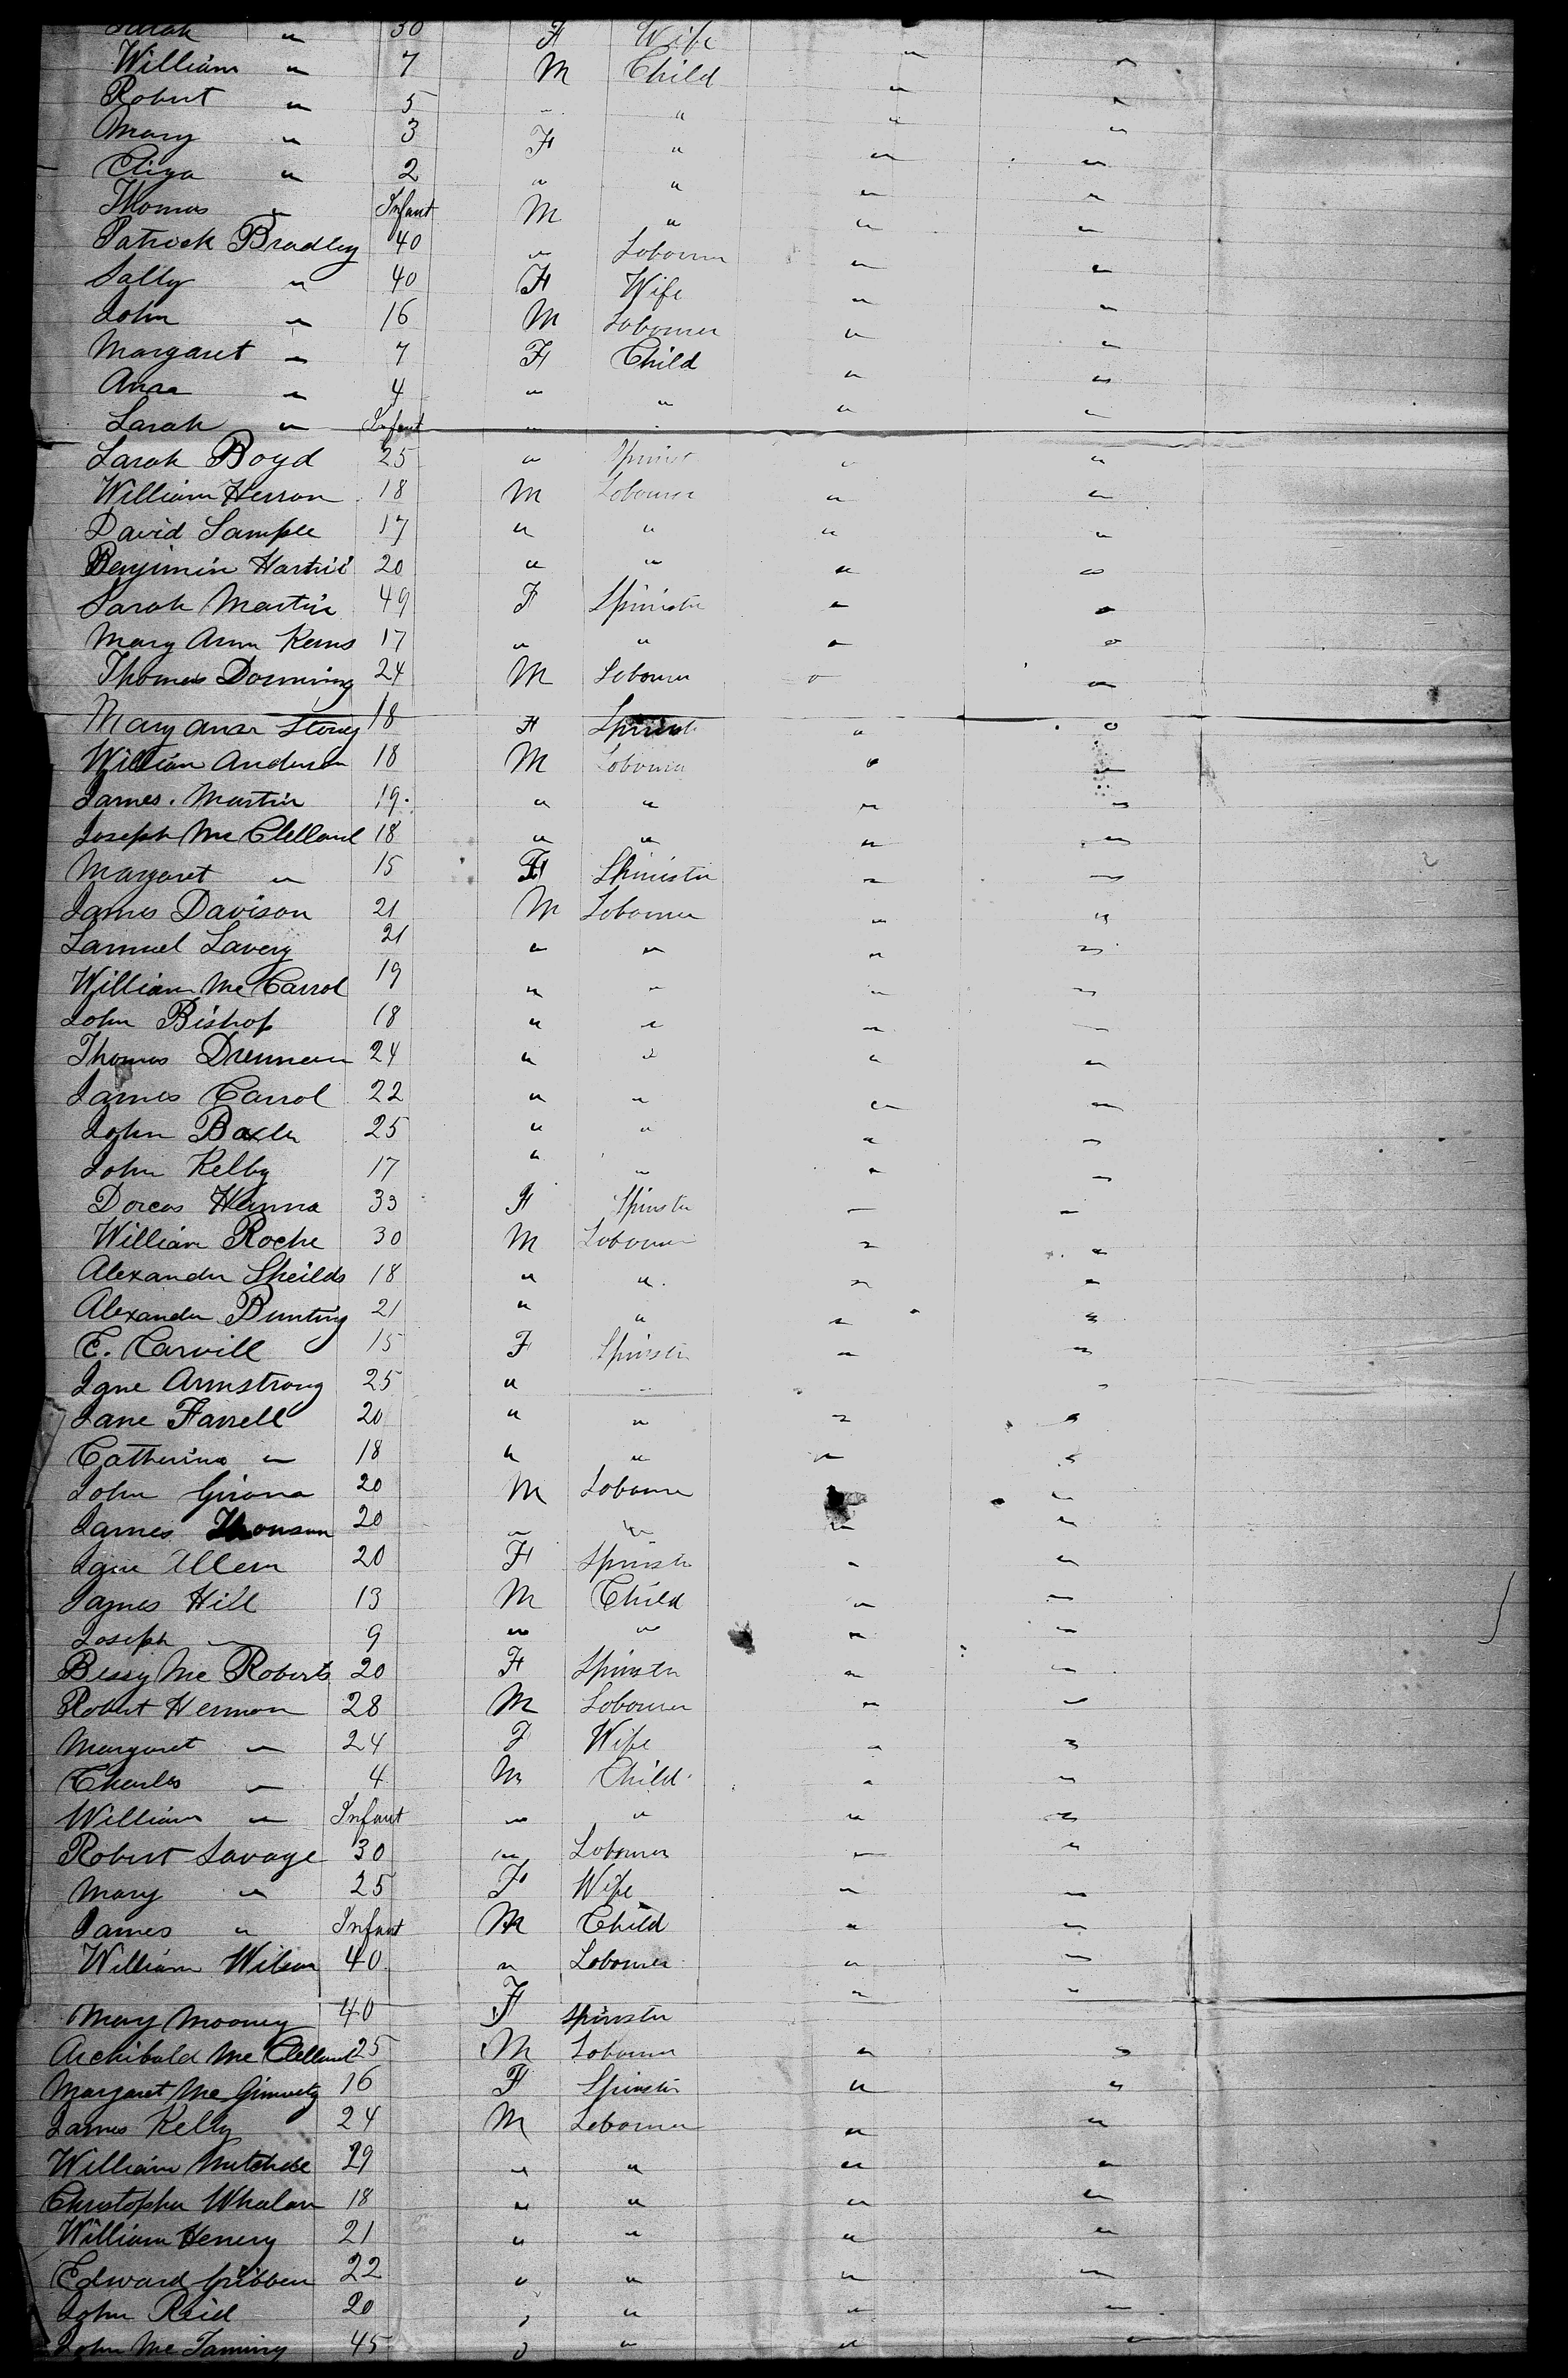 Sarah " 30 F Wife " "
William " 7 M Child " "
Robert " 5 " " " "
Mary " 3 F " " "
Eliza " 2 " " " "
Thomas " Infant M " " "
Patrick Bradley 40 " Labourer " "
Sally " 40 F Wife " "
John " 16 M Labourer " "
Margaret " 7 F Child " "
Anna " 4 " " " "
Sarah " Infant " " " "
Sarah Boyd 25 " Spinster " "
William Herron 18 M Labourer " "
David Sample 17 " " " "
Benjimin 20 " " " "
Sarah Martin 49 F Spinster " "
Mary Ann Kerns 17 " " " "
Thomas Dorming 24 M Labourer " "
Mary Anar Storey 18 F Spinster " "
William Anderson 18 M Labourer " "
James. Martin 19. " " " "
Joseph Mc Clelland 18 " " " "
Margaret " 15 F Spinister " "
James Davison 21 M Labourer " "
Samuel Lavery 21 " " " "
William Mc Carrol 19 " " " "
John Bishop 18 " " " "
Thomas Drennan 24 " " " "
James Carrol 22 " " " "
John Baxter 25 " " " "
John Kelby 17 " " " "
Dorcas Hanna 33 F Spinster " "
William Roche 30 M Labourer " "
Alexander Sheilds 18 " " " "
Alexander Bunting 21 " " " "
C. Carvill 15 F Spinster " "
Jane Armstrong 25 " " " "
Jane Farrell 20 " " " "
Catherina " 18 " " " "
John 20 M Labourer " "
James Thomson 20 " " " "
Jane Allen 20 F Spinster " "
James Hill 13 M Child " "
Joseph " 9 " " " "
Bessy Mc Roberts 20 F Spinster " "
Robert Hermon 28 M Labourer " "
Margaret " 24 F Wife " "
Charles " 4 M Child " "
William " Infant " " " "
Robert Savage 30 " Labourer " "
Mary " 25 F Wife " "
James " Infant M Child " "
William Wilson 40 " Labourer " "
Mary Mooney 40 F Spinster " "
Archibald Mc Clelland 25 M Labourer " "
Margaret Mc 16 F Spinster " "
James Kelly 24 M Labourer " "
William Mitchell 29 " " " "
Christopher Whalan 18 " " " "
William Henery 21 " " " "
Edward Gribben 22 " " " "
John Reid 20 " " " "
John Mc 45 " " " "